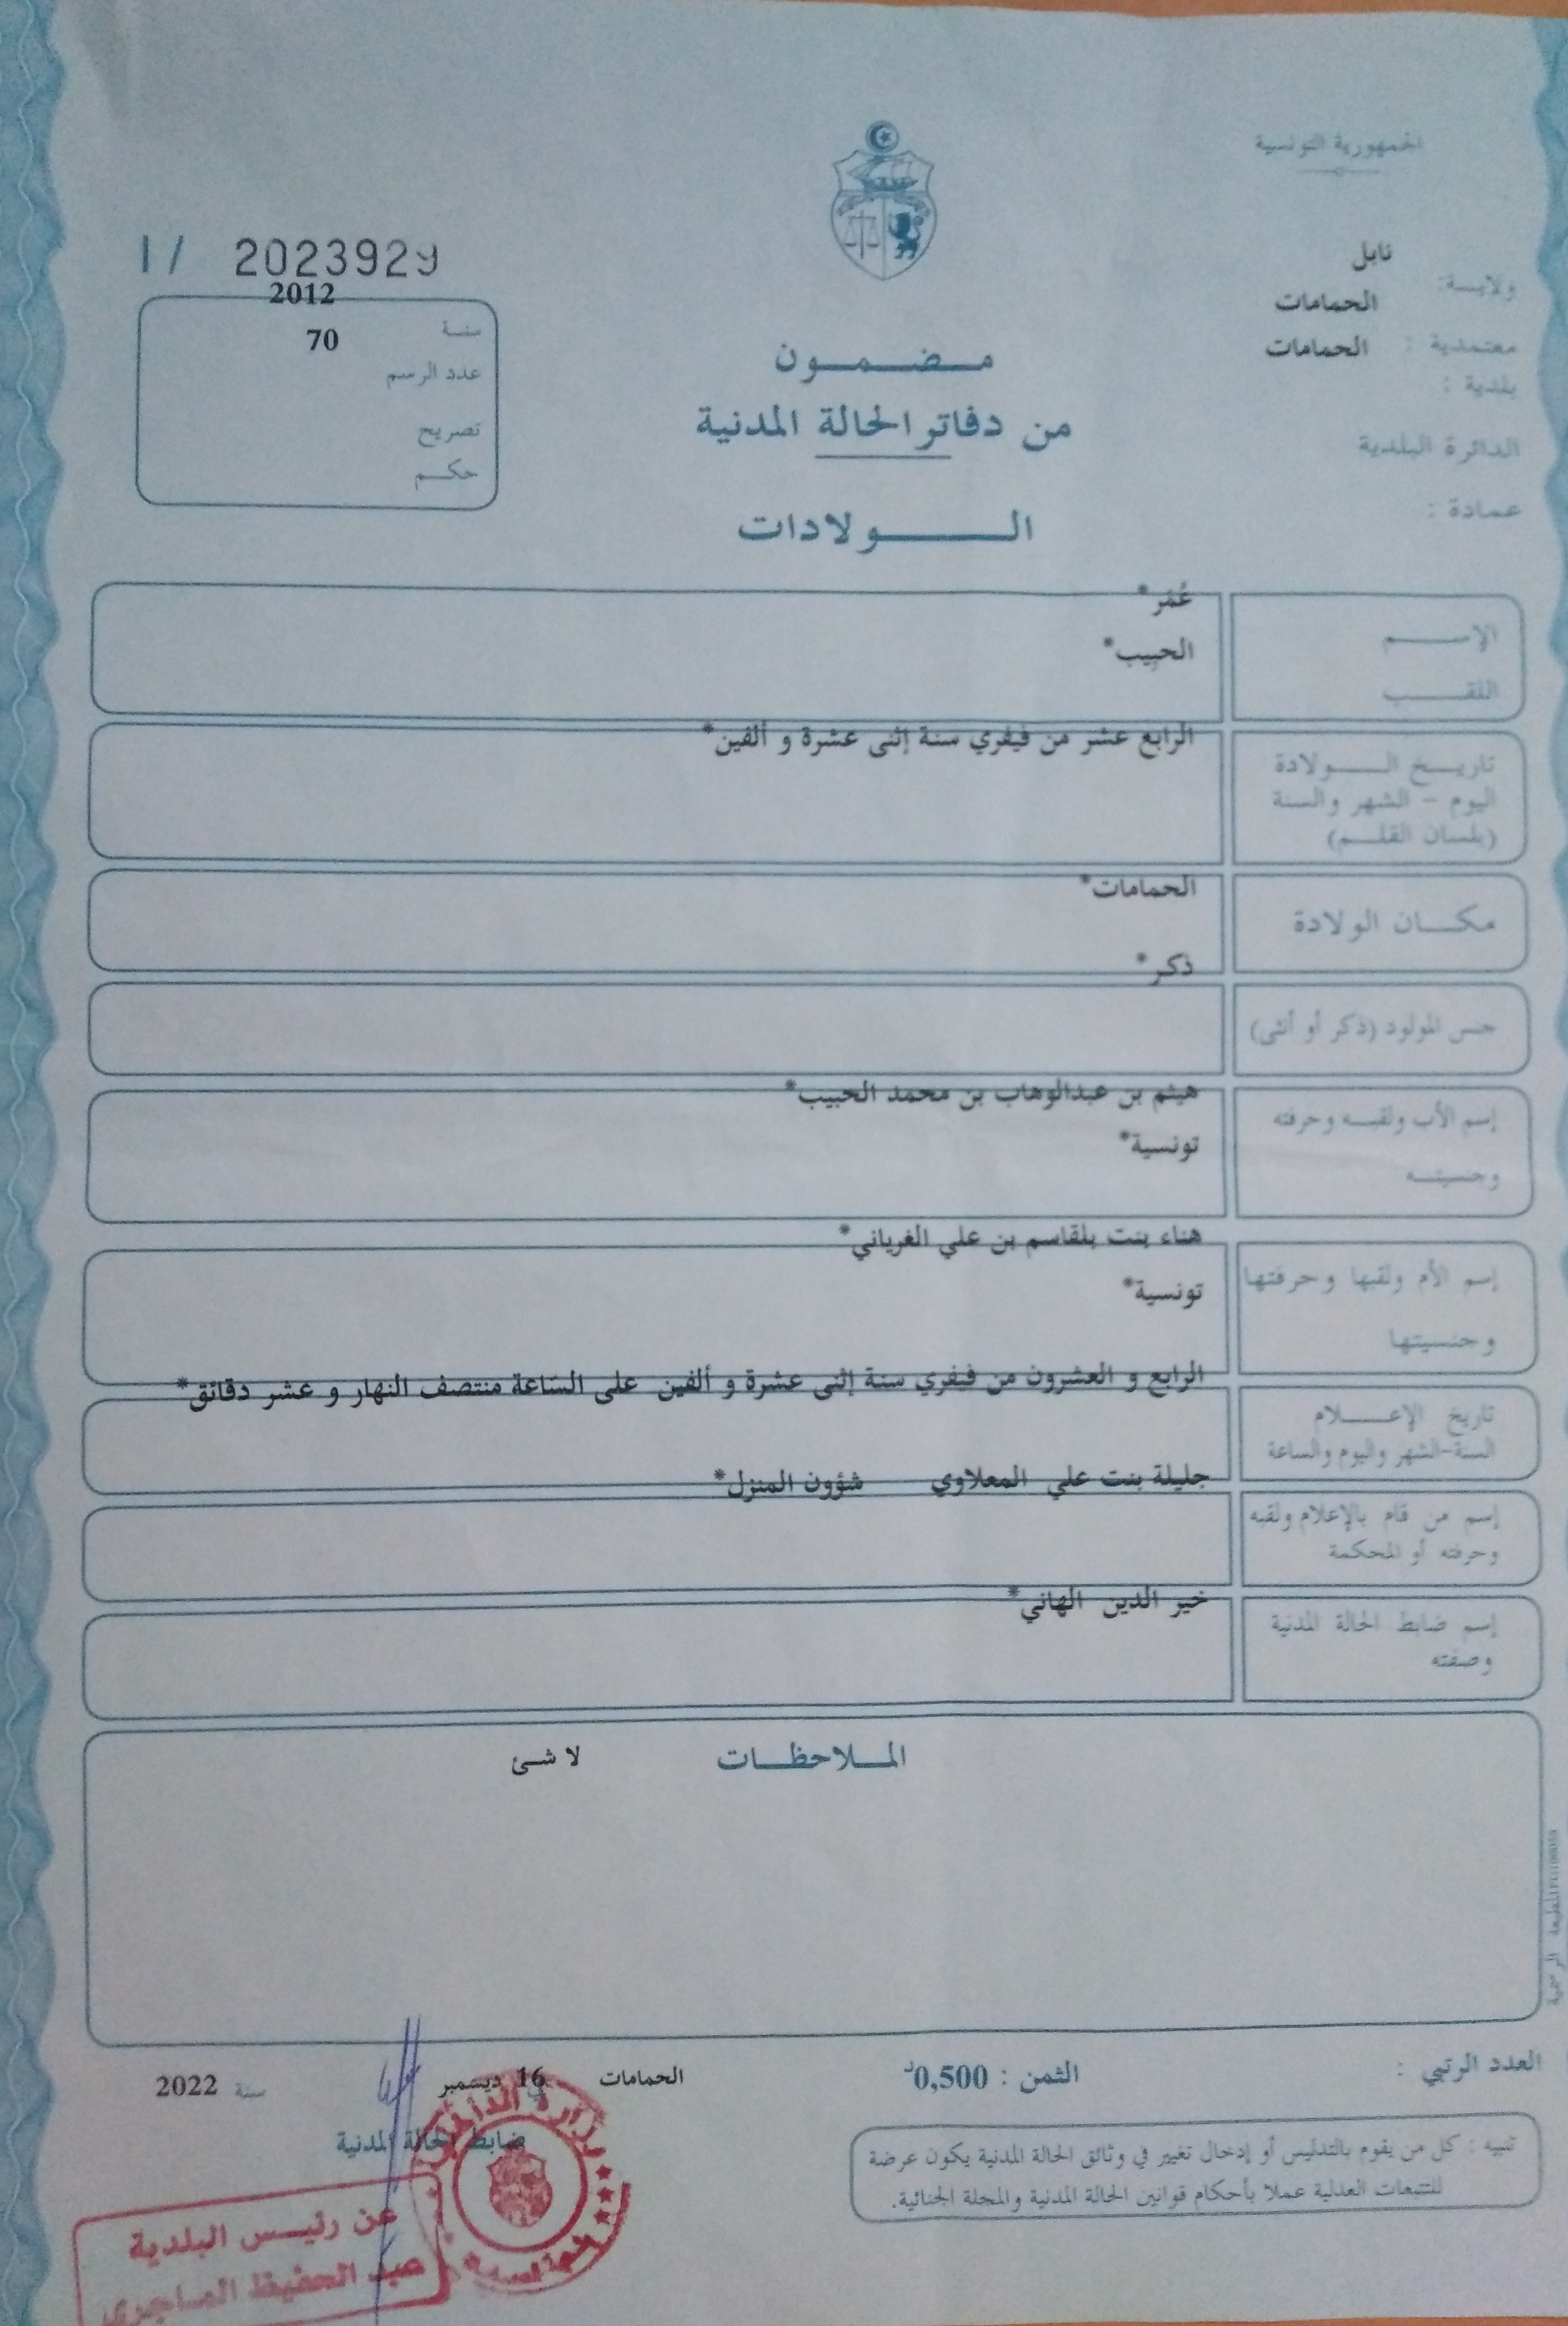 الجمهورية التونسية
نابل
ولايـــة:
الحمامات
معتمدية :
الحمامات
بلدية :
الدائرة البلدية
عمادة :
I / 2023929
2012
سنـة
70
عدد الرسم
تصريح
حكـــم
مــضــمــون
من دفاتر الحالة المدنية
الــــولادات
الإســـــم
عُمَر*
اللقـــب
الحبيب*
تاريــخ الـــولادة
اليوم - الشهر والسنة
(بلسان القلــم)
الرابع عشر من فيفري سنة إثنى عشرة و ألفين*
مكـــان الولادة
الحمامات*
ذكر*
جنس المولود (ذكر أو أنثى)
إسم الأب ولقبــه وحرفته
هيثم بن عبدالوهاب بن محمد الحبيب*
وجنسيتــه
تونسية*
إسم الأم ولقبها وحرفتها
هناء بنت بلقاسم بن علي الغرياني*
وجنسيتها
تونسية*
الرابع و العشرون من فيفري سنة إثنى عشرة و ألفين على الساعة منتصف النهار و عشر دقائق*
تاريخ الإعـــلام
السنة-الشهر واليوم والساعة
جليلة بنت علي المعلاوي شؤون المنزل*
إسم من قام بالإعلام ولقبه
وحرفته أو المحكمة
خير الدين الهاني*
إسم ضابط الحالة المدنية
وصفته
المــلاحظــات لا شئ
العدد الرتبي :
الثمن : 0,500د
الحمامات في 16 ديسمبر سنة 2022
ضابط الحالة المدنية
تنبيه : كل من يقوم بالتدليس أو إدخال تغيير في وثائق الحالة المدنية يكون عرضة
للتتبعات العدلية عملا بأحكام قوانين الحالة المدنية والمجلة الجنائية.
وزارة الداخلية
عن رئيــس البلدية
عبد الحفيظ الماجري
المطبعة الرسمية